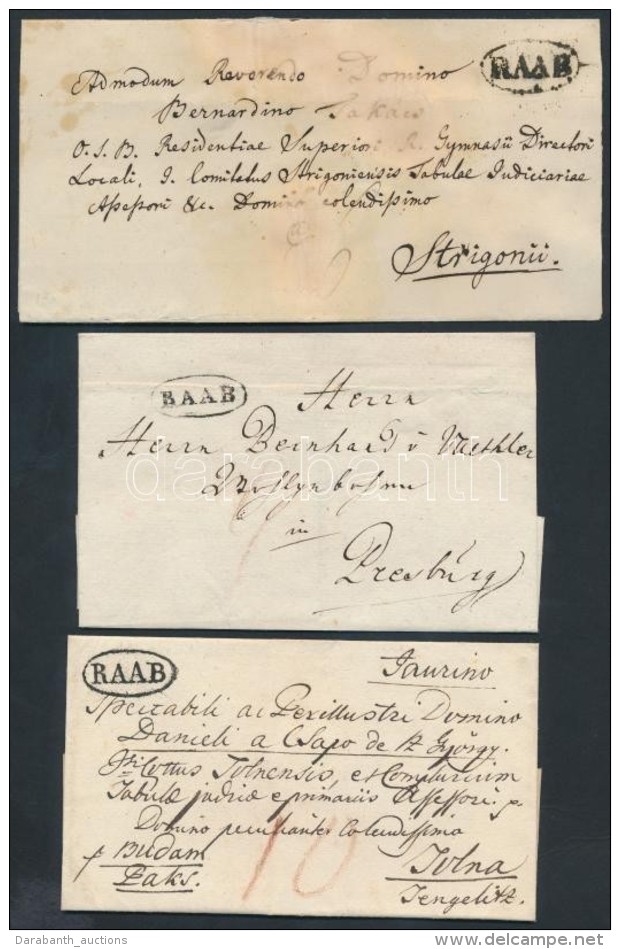 RAAB
Admodum Reverendo Domino
Bernardino Takács
O. S. B. Residentiae Superiori R. Gymnasii Directori
Locali, I. Comitatus Strigoniensis Tabulae Judiciariae
Assessori &c. Domino colendissimo
Strigonii.
RAAB
Herrn
Herrn Bernhard v
in
Presburg
darabanth
RAAB
Taurino
Spectabili ac Perillustri Domino
Danieli a Csapo de Sz György.
Cottus Tolnensis, et Complurium
Tabulæ judriæ primariis Assessori. p.
Domino peculiariter Colendissimo
p Budam
Paks.
10
Tolna
Tengelitz.
Darabanth_auctions
delcampe.net